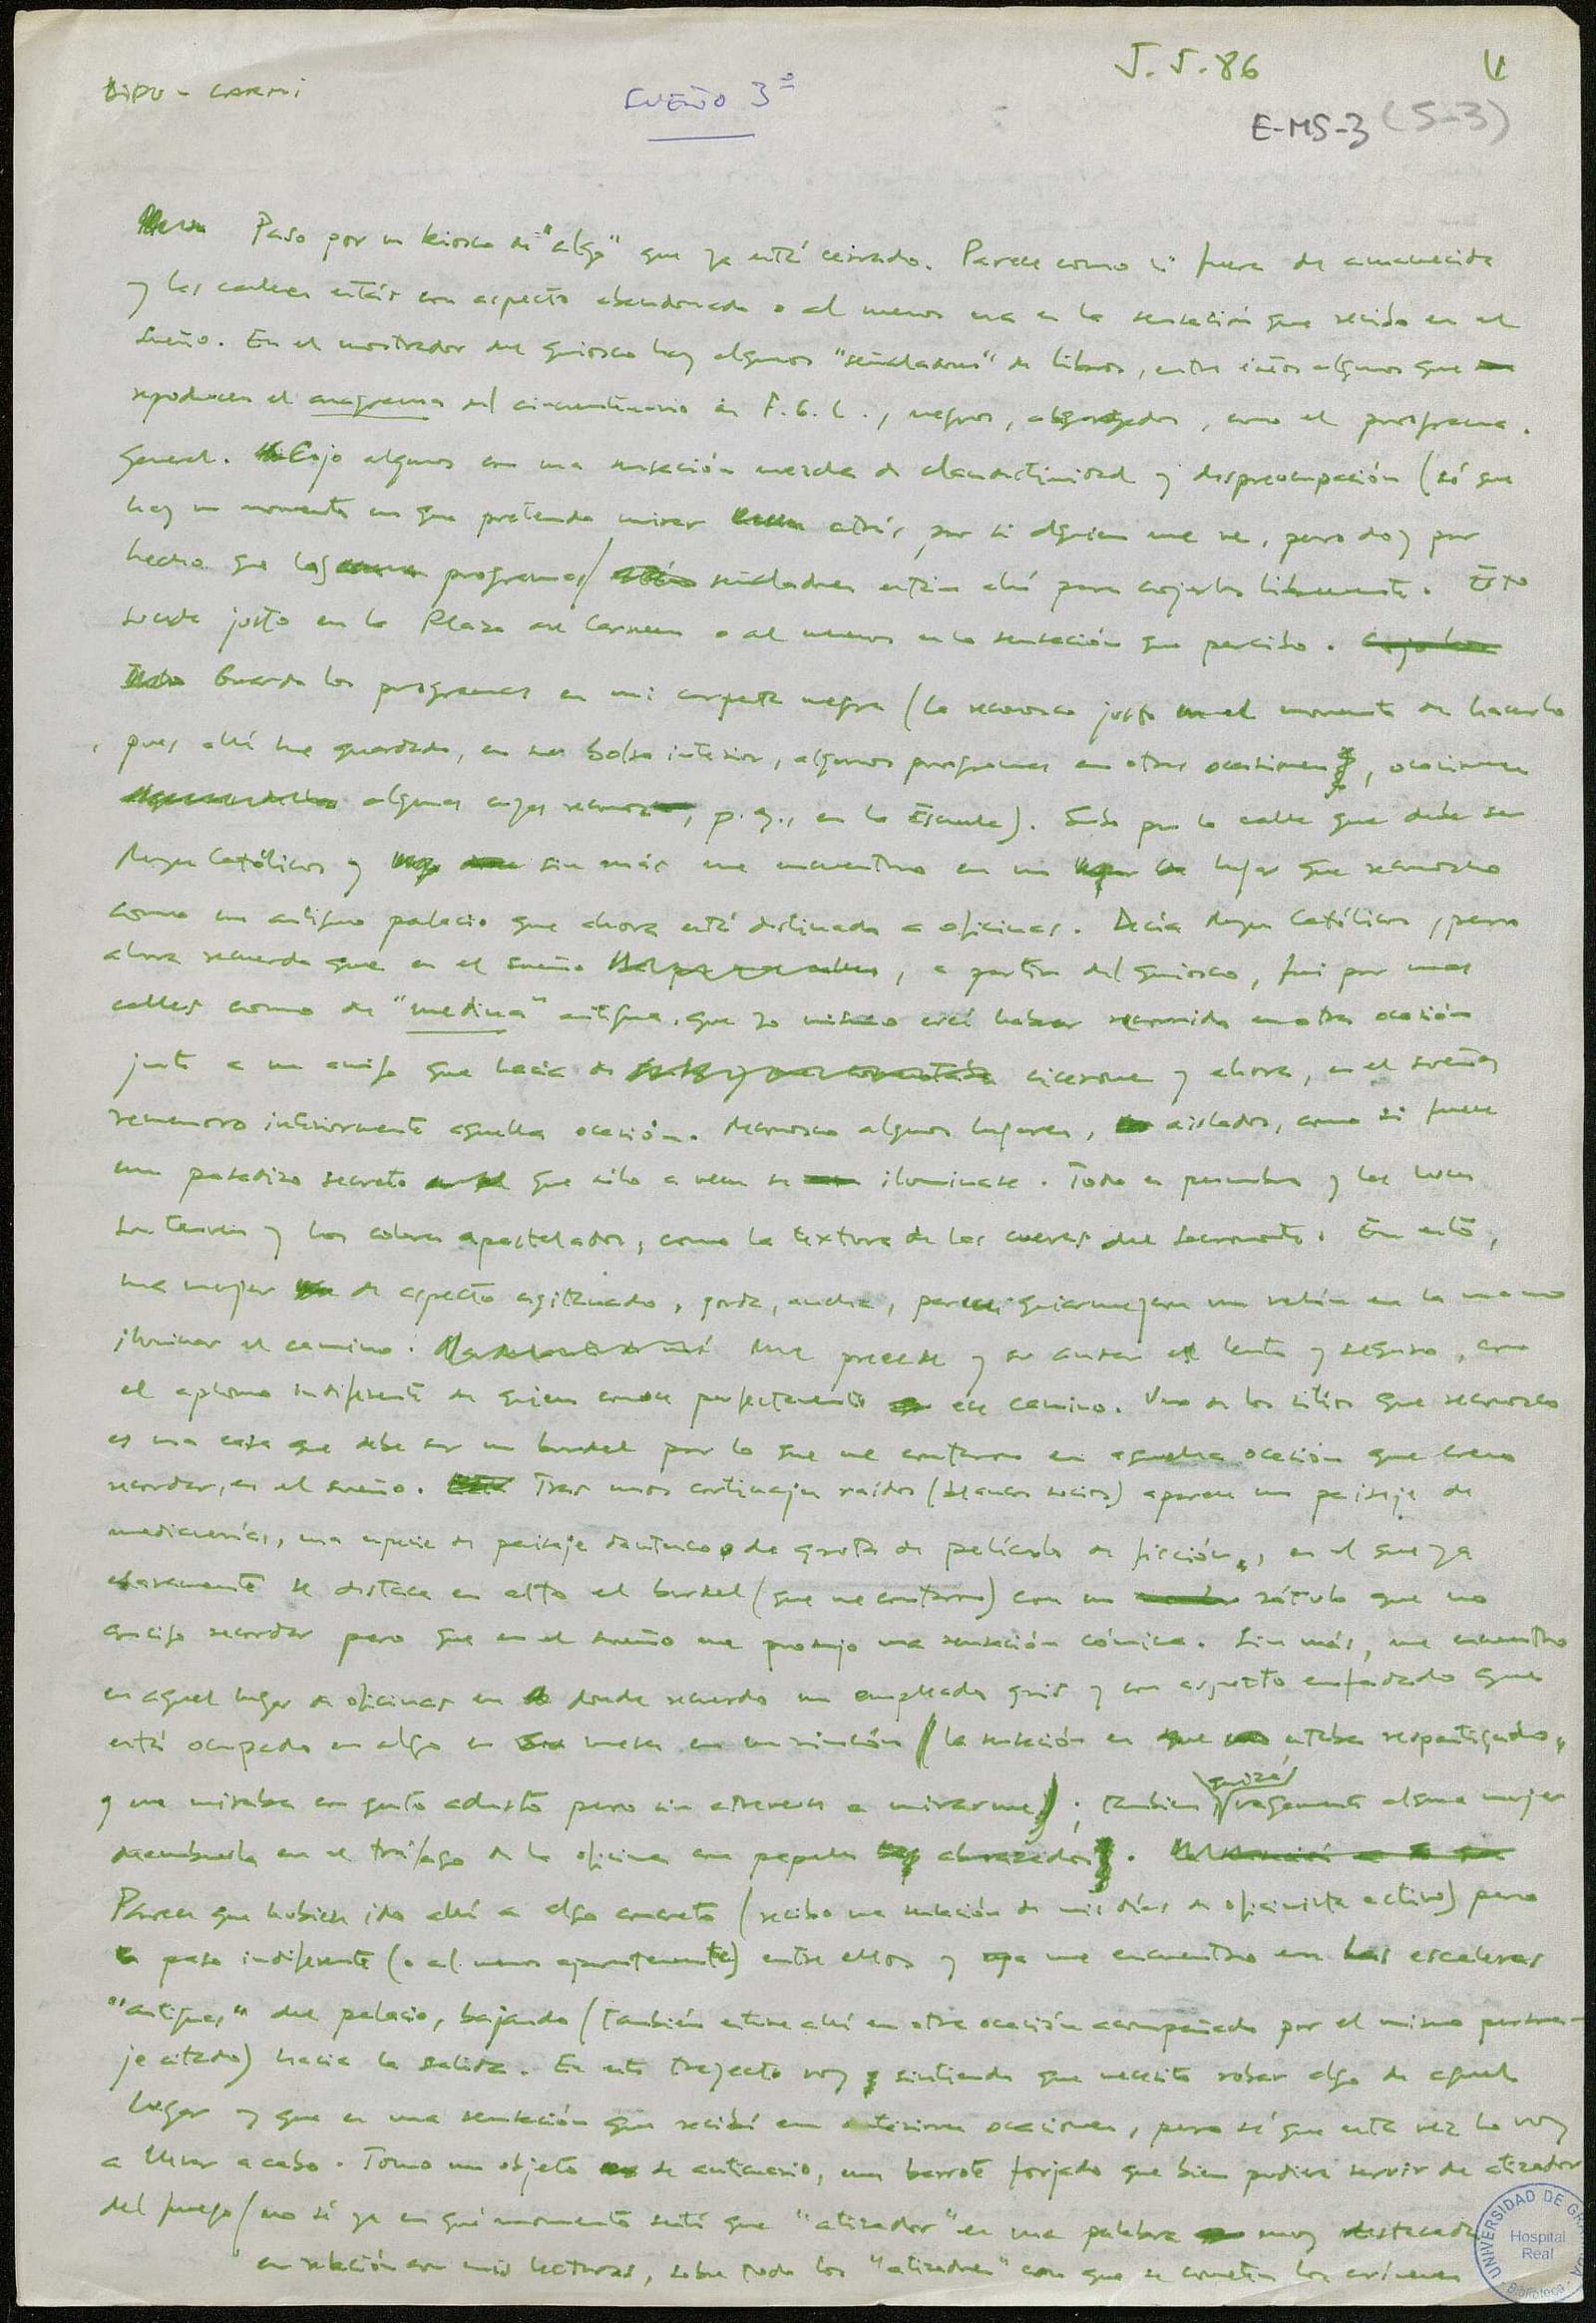 SUEÑO 3º
5.5.86
E-MS-3 (S-3)
Paso por un kiosco de "algo" que ya está cerrado. Parece como si fuera de amanecida
y las calles están con aspecto abandonado o al menos esa es la sensación que recibo en el
sueño. En el mostrador del quiosco hay algunos "señaladores" de libros, entre éstos algunos que
reproducen el anagrama del cincuentenario de F.G.L., negros, como el programa
general. Cojo algunos con una sensación mezcla de clandestinidad y despreocupación (sé que
hay un momento en que pretendo mirar atrás por si alguien me ve, pero doy por
hecho que los programas/señaladores están ahí para cogerlos libremente. Esto
sucede justo en la Plaza del Carmen o al menos es la sensación que percibo.
Guardo los programas en mi carpeta negra (la reconozco justo en el momento de hacerlo
pues ahí he guardado, en su bolso interior, algunos programas en otras ocasiones, ocasiones
algunas cuyas reconozco, p.ej., en la Escuela). Subo por la calle que debe ser
Reyes Católicos y sin más me encuentro en un lugar que reconozco
como un antiguo palacio que ahora está destinado a oficinas. Decía Reyes Católicos, pero
ahora recuerdo que en el sueño, a partir del quiosco, fui por unas
calles como de "medina" antigua, que yo mismo creí haber recorrido en otra ocasión
junto a un amigo que hacía de cicerone y ahora, en el sueño,
rememoro interiormente aquella ocasión. Reconozco algunos lugares, aislados, como si fuese
un pasadizo secreto que sólo a veces se iluminase. Todo es penumbra y las luces
son tenues y los colores apastelados, como la textura de las cuevas del Sacromonte. En esto,
una mujer de aspecto agitanado, gorda, ancha, parece guiarme con un velón en la mano
iluminar el camino. Me precede y su andar es lento y seguro, con
el aplomo indiferente de quien conoce perfectamente ese camino. Uno de los sitios que reconozco
es una casa que debe ser un burdel por lo que me contaron en aquella ocasión que creo
recordar, en el sueño. Tras unos cortinajes raídos (blancos sucios) aparece un paisaje de
medianerías, una especie de paisaje dantesco o de gruta de película de ficción, en el que ya
claramente se destaca en alto el burdel (que me contaron) con un rótulo que no
consigo recordar pero que en el sueño me produjo una sensación cómica. Sin más, me encuentro
en aquel lugar de oficinas en donde recuerdo un empleado gris y con aspecto enfadado que
está ocupado en algo en mesa en un rincón (la sensación es que estaba
y me miraba con gesto adusto pero sin atreverse a mirarme); también quizá vagamente alguna mujer
en el tráfago de la oficina con papeles abrazados.
Parece que hubiese ido allí a algo concreto (recibo una sensación de mis días de oficinista activo) pero
paso indiferente (o al menos aparentemente) entre ellos y me encuentro en las escaleras
"antiguas" del palacio, bajando (también estuve allí en otra ocasión acompañado por el mismo persona-
je citado) hacia la salida. En este trayecto voy sintiendo que necesito robar algo de aquel
lugar y que es una sensación que recibí en anteriores ocasiones, pero sé que esta vez lo voy
a llevar a cabo. Tomo un objeto de anticuario, un barrote forjado que bien pudiera servir de atizador
del fuego (no sé ya en qué momento sentí que "atizador" es una palabra muy destacada
en relación con mis lecturas, sobre todo los "atizadores" con que se cometen los crímenes
UNIVERSIDAD DE GRANADA
Hospital
Real
Biblioteca